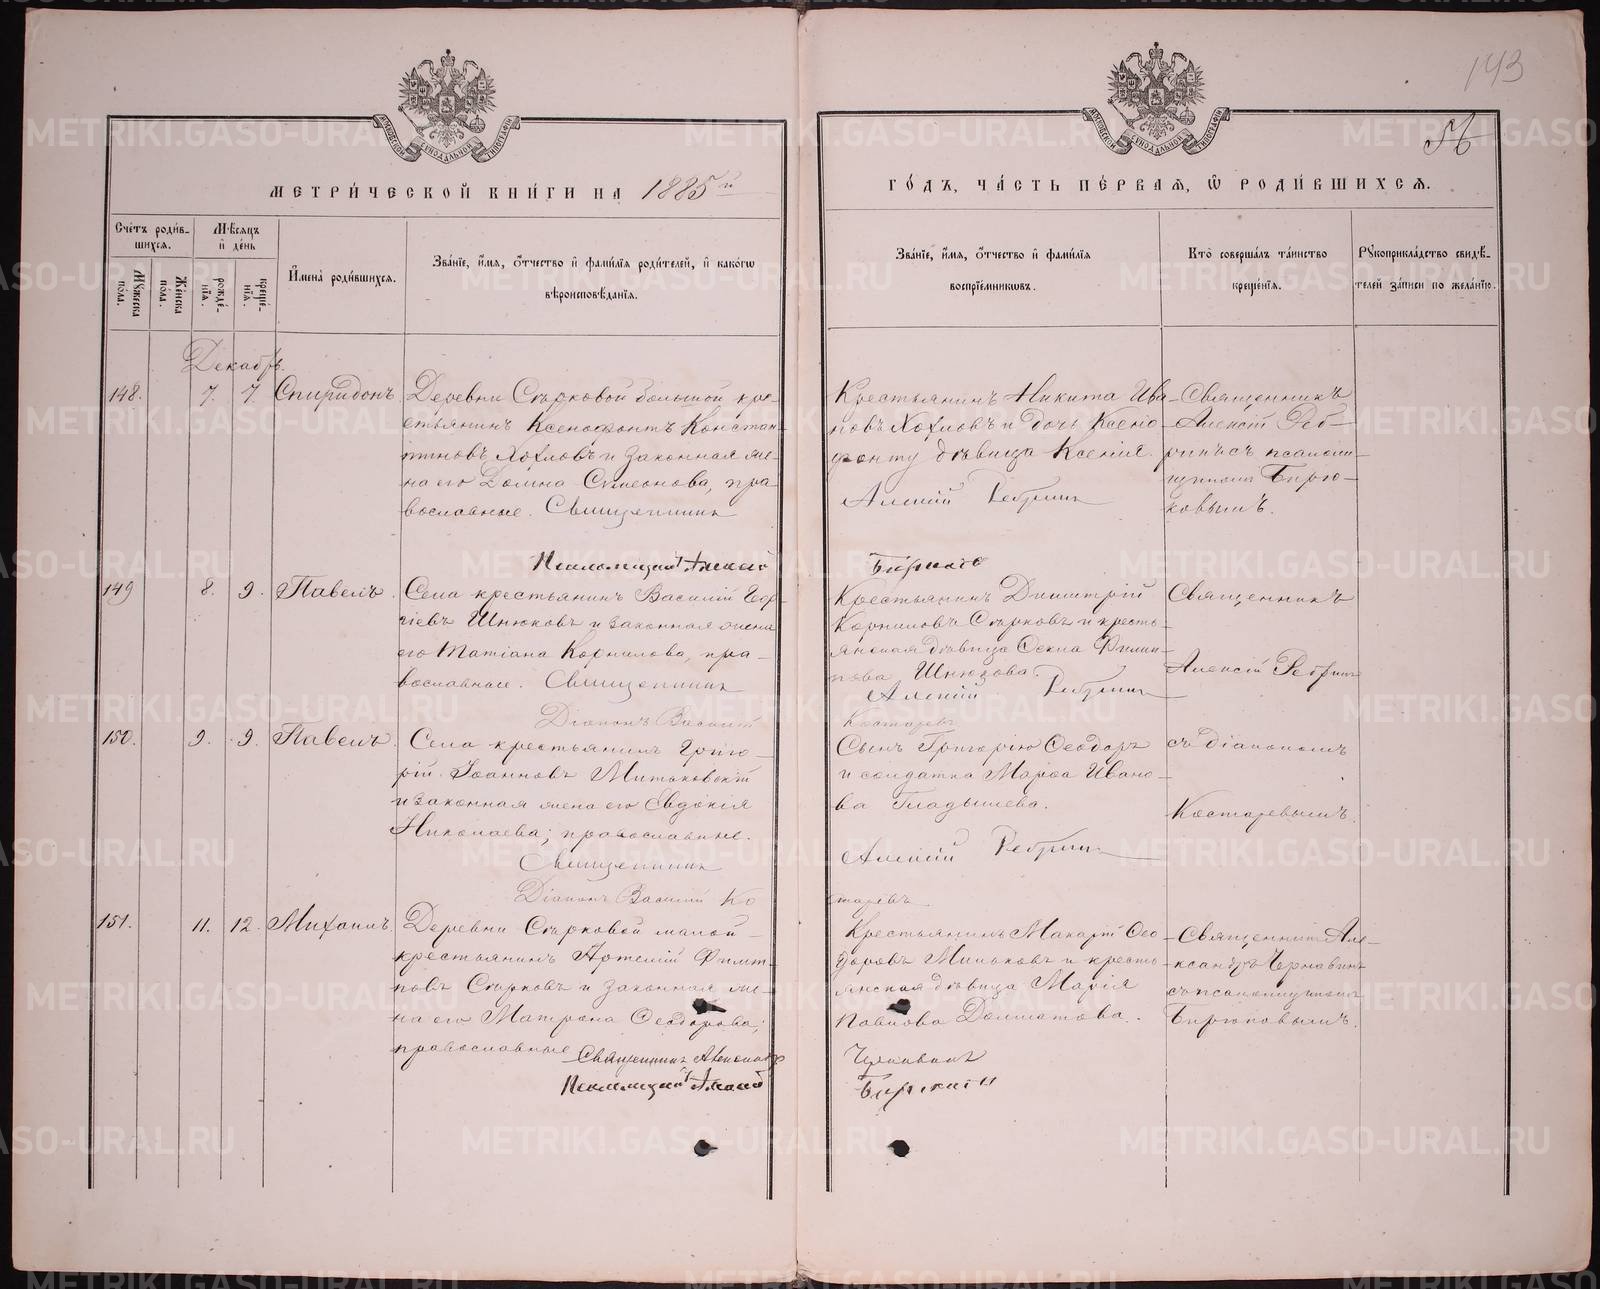 143
МЕТРИ́ЧЕСКОЙ КНИ́ГИ НА 1885й
ГО́ДЪ, ЧА́СТЬ ПЕ́РВАЯ, Ѡ РОДИ́ВШИХСЯ.
Сче́тъ роди́вшихся.
Му́жеска по́ла.
Же́нска по́ла.
Мѣ́сяцъ и де́нь
рожде́нїя.
креще́нїя.
Имена́ роди́вшихся.
Зва́нїе, и́мя, о́тчество и фами́лїя роди́телей, и како́гѡ
вѣроисповѣ́данїя.
Зва́нїе, и́мя, о́тчество и фами́лїя
воспрїе́мниковъ.
Кто̀ соверша́лъ та́инство
креще́нїя.
Рукоприкла́дство свидѣ́телей за́писи по жела́нїю.
Декабрь
148. 7. 7. Спиридонъ
Деревни Сѣрковой большой кре-
стьянинъ Ксенофонтъ Констан-
тиновъ Хохловъ и законная же-
на его Домна Симеонова, пра-
вославные. Священникъ
Псаломщикъ
Крестьянинъ Никита Ива-
новъ Хохловъ и дочь Ксено-
фонту дѣвица Ксенія.
Алексій Ребринъ
Священникъ
Алексій Реб-
ринъ съ псаломщикомъ Бирю-
ковымъ.
149 8. 9. Павелъ
Села крестьянинъ Василій Геор-
гіевъ Шнюковъ и законная жена
его Татіана Корнилова, пра-
вославные. Священникъ
Діаконъ Василій
Крестьянинъ Димитрій
Корниловъ Сѣрковъ и кресть-
янская дѣвица Филип-
пова Шнюкова.
Алексій Ребринъ
Костаревъ
Священникъ
Алексій Ребринъ
150. 9. 9. Павелъ
Села крестьянинъ Григо-
рій Іоанновъ
и законная жена его Евдокія
Николаева; православные.
Священникъ
Діаконъ Василій Ко
Сынъ Григорію Ѳеодоръ
и солдатка Марѳа Ивано-
ва Гладышева.
Алексій Ребринъ
старевъ
съ діакономъ
Костаревымъ.
151. 11. 12. Михаилъ
Деревни Сѣрковой малой
крестьянинъ Артемій Филип-
повъ Сѣрковъ и законная же-
на его Матрона Ѳеодорова;
православные Священникъ Александръ
Псаломщикъ
Крестьянинъ Макарій Ѳео-
доровъ и кресть-
янская дѣвица Марія
Павлова Долматова.
Чернавинъ
Священникъ Але-
ксандръ Чернавинъ
съ псаломщикомъ
Бирюковымъ.
METRIKI.GASO-URAL.RU